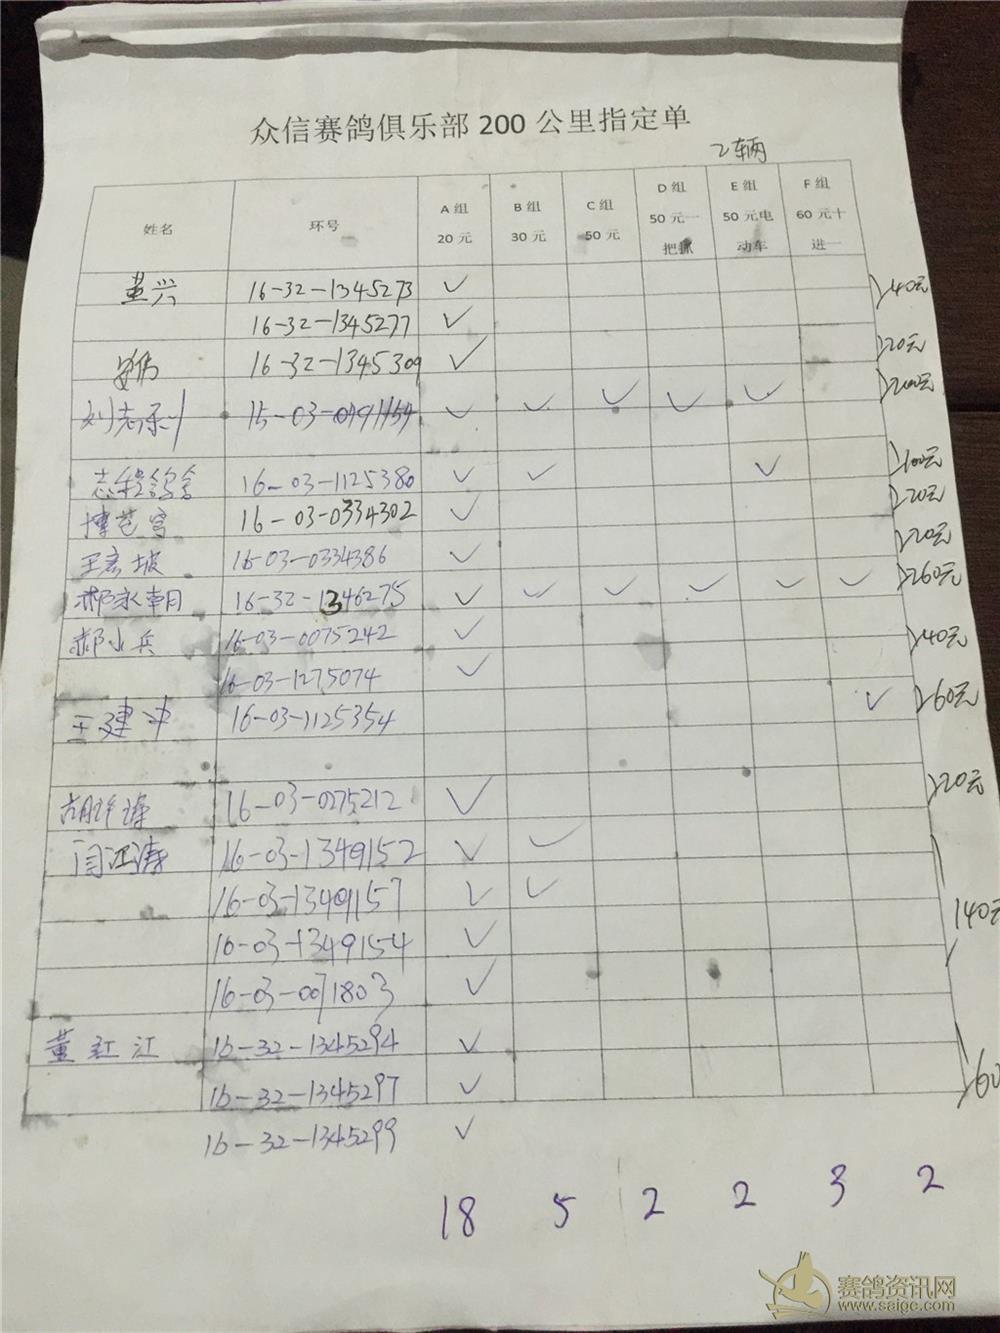 众信赛鸽俱乐部 200 公里指定单
2辆
姓名 环号 A 组 20 元 B 组 30 元 C 组 50 元 D 组 50 元一把抓 E 组 50 元电动车 F 组 60 元十进一
董兴 16-32-1345273 ✓ 40元
16-32-1345277 ✓
16-32-1345309 ✓ 20元
刘志利 15-03-0791154 ✓ ✓ ✓ ✓ ✓ 200元
志程鸽舍 16-03-1125380 ✓ ✓ ✓ 100元
博芭宫 16-03-0334302 ✓ 20元
王彦坡 16-03-0334386 ✓ 20元
郝永朝 16-32-1346275 ✓ ✓ ✓ ✓ ✓ ✓ 260元
郝小兵 16-03-0075242 ✓ 40元
16-03-1275074 ✓
王建冲 16-03-1125354 ✓ 60元
胡祥涛 16-03-0275212 ✓ 20元
闫江涛 16-03-1349152 ✓ ✓ 140元
16-03-1349157 ✓ ✓
16-03-1349154 ✓
16-03-0071803 ✓
董红江 16-32-1345294 ✓ 60
16-32-1345297 ✓
16-32-1345299 ✓
18 5 2 2 3 2
赛鸽资讯网
www.saige.com